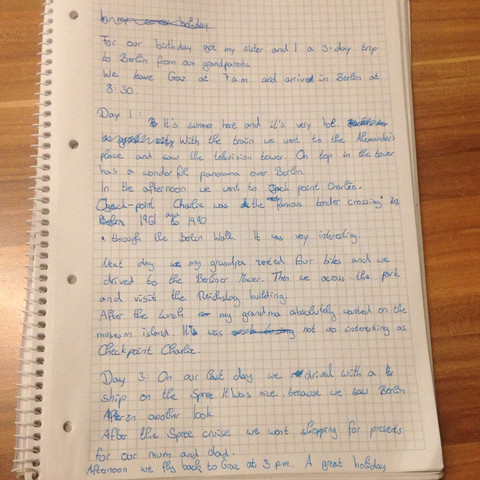 holiday
For our birthday got my sister and I a 3-day trip
to Berlin from our grandparents.
We leave Graz at 7 a.m. and arrived in Berlin at
8:30.
Day 1: It's summer here and it's very hot.
With the train we went to the Alexander's
place and saw the television tower. On top in the tower
has a wonderfull panorama over Berlin.
In the afternoon we went to Check point Charlie.
Check-point Charlie was the famous border crossing in
Berlin 1961 and 1990
through the Berlin Walk. It was very interesting.
Next day my grandpa rented four bikes and we
drived to the Berliner Mauer. Then we across the park
and visit the Reichstag building.
After the lunch my grandma absolutely wanted on the
museum island. It was not so interesting as
Checkpoint Charlie.
Day 3: On our last day we drived with a
ship on the Spree. It was nice because we saw Berlin
on another look.
After the Spree cruise we want shopping for presents
for our mum and dad.
Afternoon we fly back to Graz at 3 p.m. A great holiday